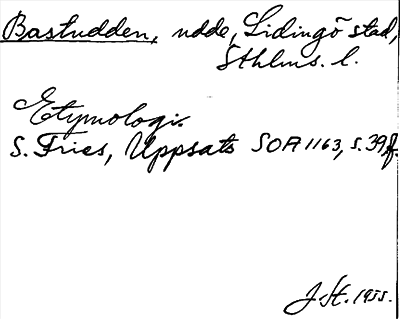 Bastudden, udde, Lidingö stad,
Sthlms. l.
Etymologi.
S. Fries, Uppsats SOA 1163, s. 39 f.
J. St. 1955.